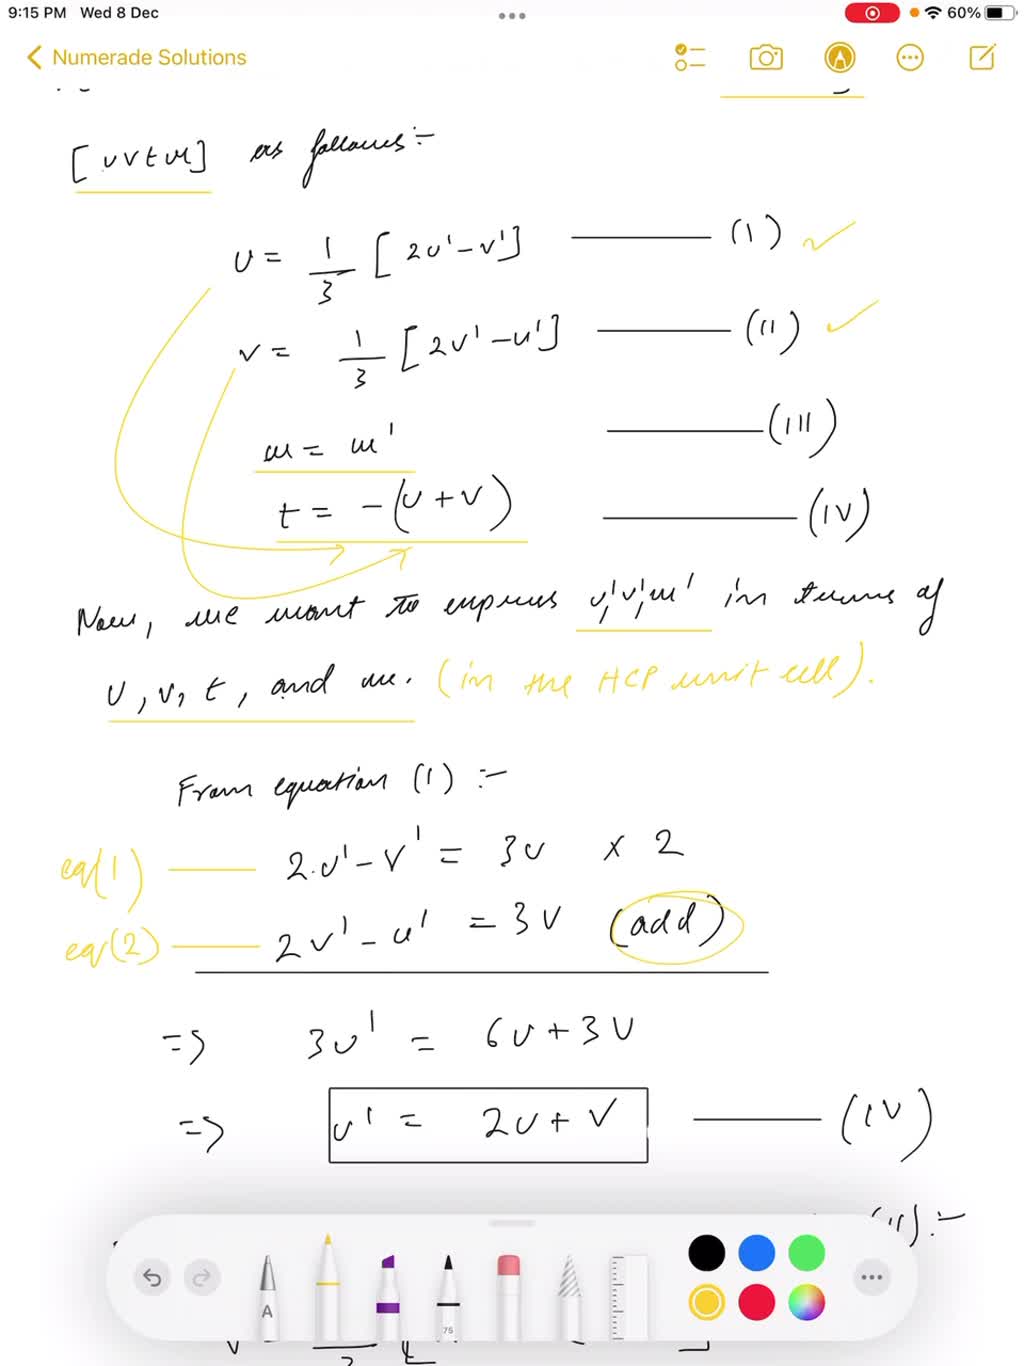 9:15 PM Wed 8 Dec 60%
Numerade Solutions
[uvtm] as follows:-
u = 1/3 [2u' - v'] (I)
v = 1/3 [2v' - u'] (II)
m = m' (III)
t = -(u + v) (IV)
Now, we want to express u', v', m' in terms of
u, v, t, and m. (in the HCP unit cell).
From equation (1) :-
eq(1) 2.u' - v' = 3u x 2
eq(2) 2v' - u' = 3v (add)
=> 3u' = 6u + 3v
=> u' = 2u + v (IV)
(II) :-
A
75